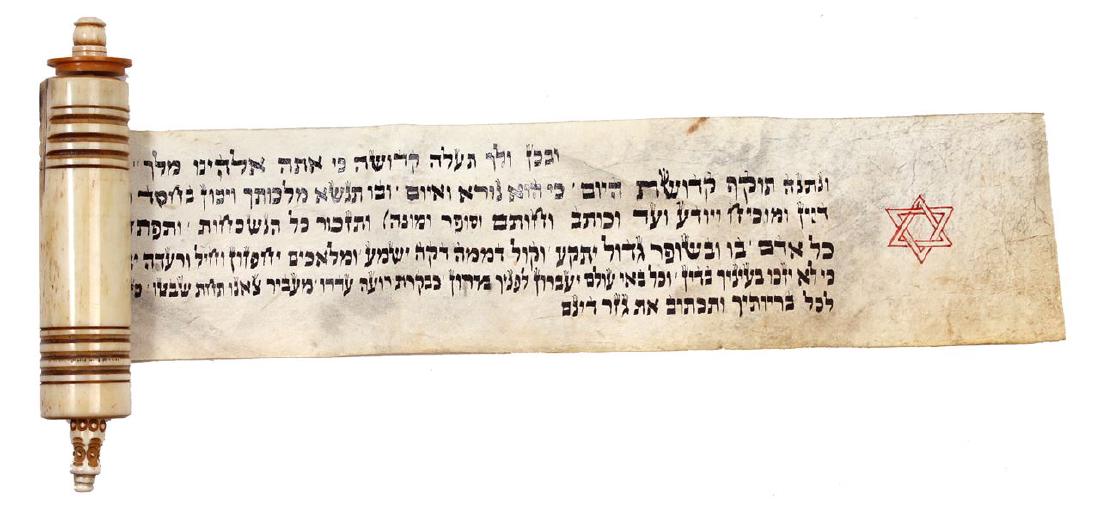 ובכן ולך תעלה קדושה כי אתה אלהינו מלך
ונתנה תוקף קדושת היום כי הוא נורא ואיום ובו תנשא מלכותך ויכון בחסד
דיין ומוכיח ויודע ועד וכותב וחותם וסופר ומונה) ותזכור כל הנשכחות ותפתח
כל אדם בו ובשופר גדול יתקע וקול דממה דקה ישמע ומלאכים יחפזון וחיל ורעדה
כי לא יזכו בעיניך בדין וכל באי עולם יעברון לפניך במרון כבקרת רועה עדרו מעביר צאנו תחת שבטו
לכל בריותיך ותכתוב את גזר דינם